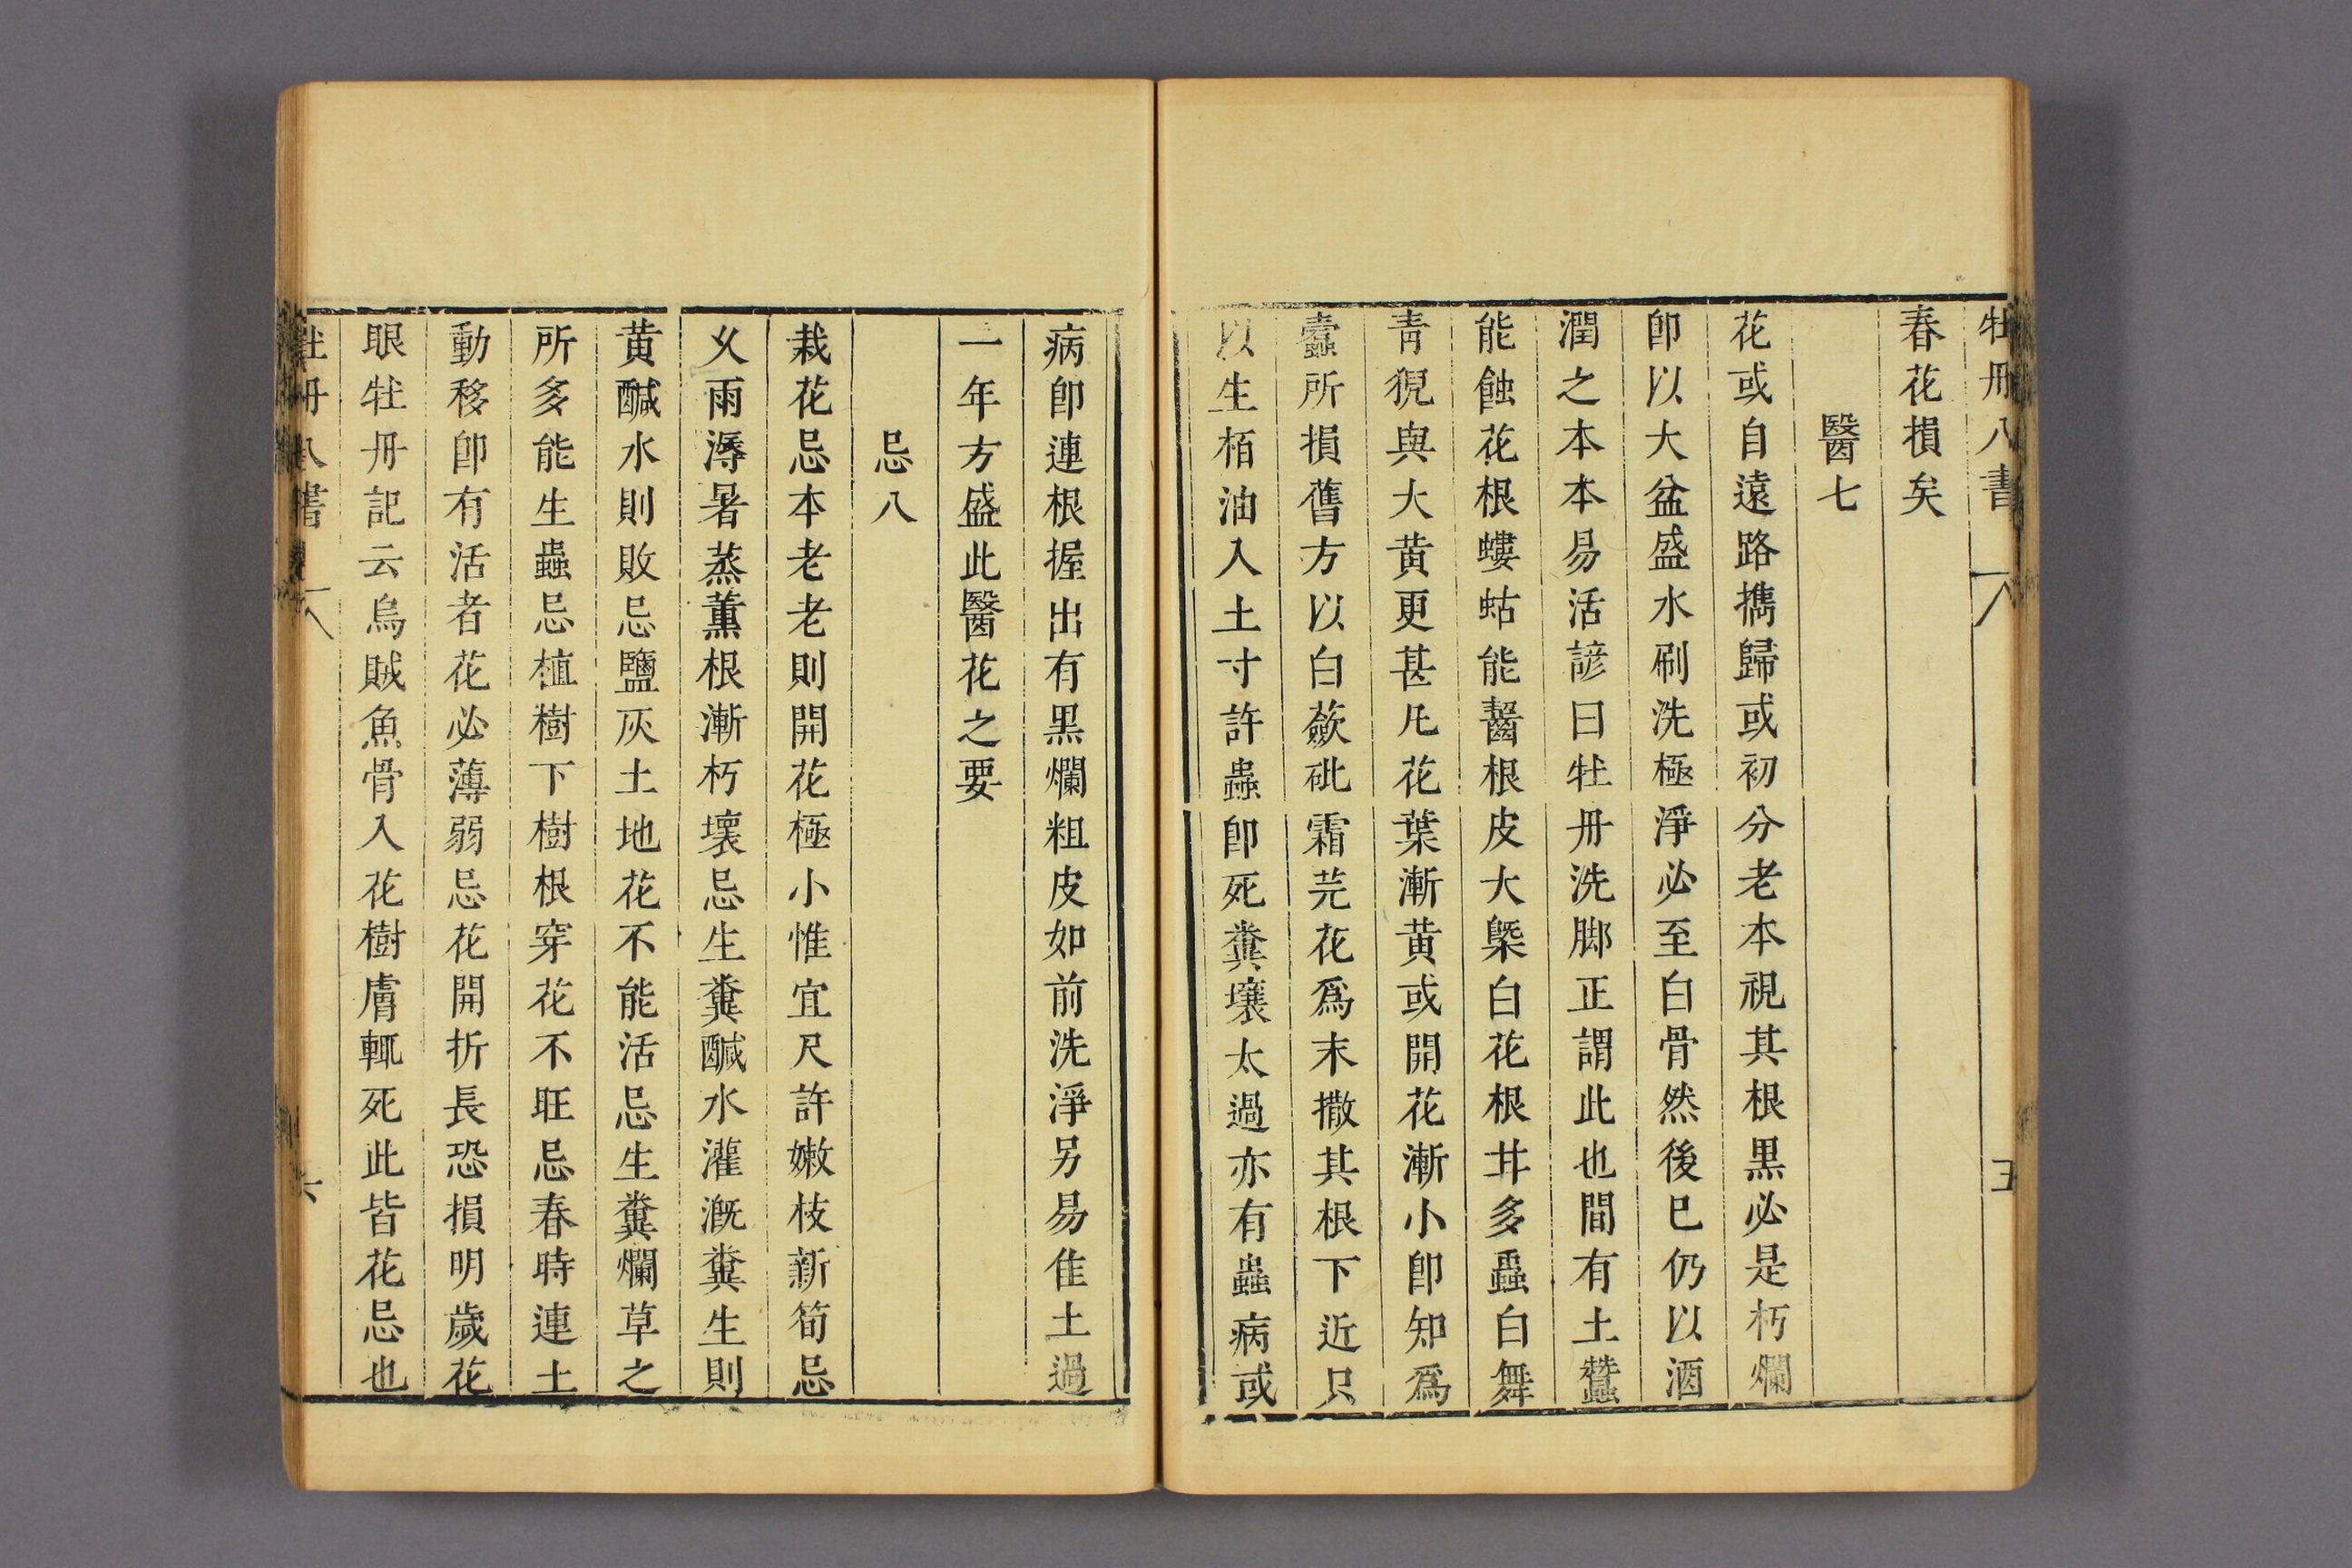 牡丹八書 八 五
春花損矣
醫七
花或自遠路擕歸或初分老本視其根黒必是朽爛
卽以大盆盛水刷洗極淨必至白骨然後巳仍以酒
潤之本本易活諺曰牡丹洗脚正謂此也間有土蠶
能蝕花根螻蛄能齧根皮大槩白花根甘多蟲白舞
青猊與大黄更甚凡花葉漸黄或開花漸小卽知爲
蠹所損舊方以白蘞砒霜芫花爲末撒其根下近只
以生栢油入土寸許蟲卽死糞壤太過亦有蟲病或
病卽連根掘出有黒爛粗皮如前洗淨另易佳土過
一年方盛此醫花之要
忌八
栽花忌本老老則開花極小惟宜尺許嫩枝新筍忌
久雨溽暑蒸薰根漸朽壞忌生糞醎水灌漑糞生則
黄醎水則敗忌鹽灰土地花不能活忌生糞爛草之
所多能生蟲忌植樹下樹根穿花不旺忌春時連土
動移卽有活者花必薄弱忌花開折長恐損明歲花
眼牡丹記云烏賊魚骨入花樹膚輒死此皆花忌也
牡丹八書 八 六